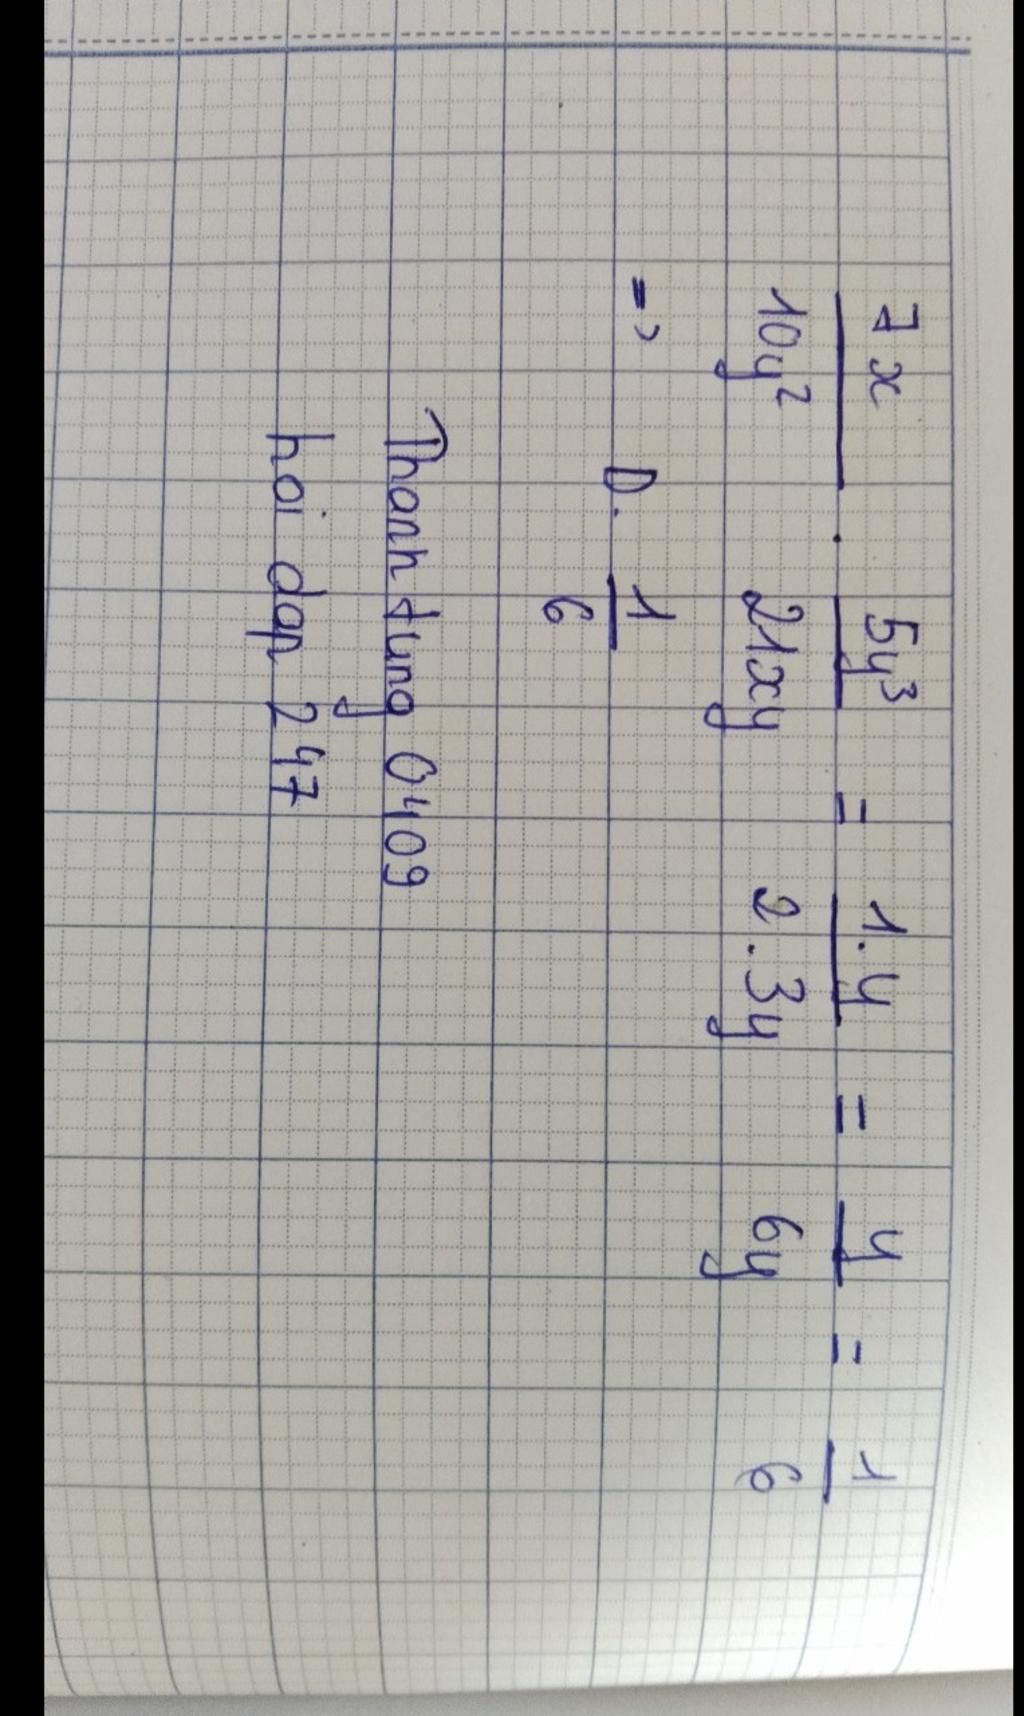 7x/10y² · 5y³/21xy = 1.y/2.3y = y/6y = 1/6
=> D. 1/6
Thanh tung 0409
hoi dap 247